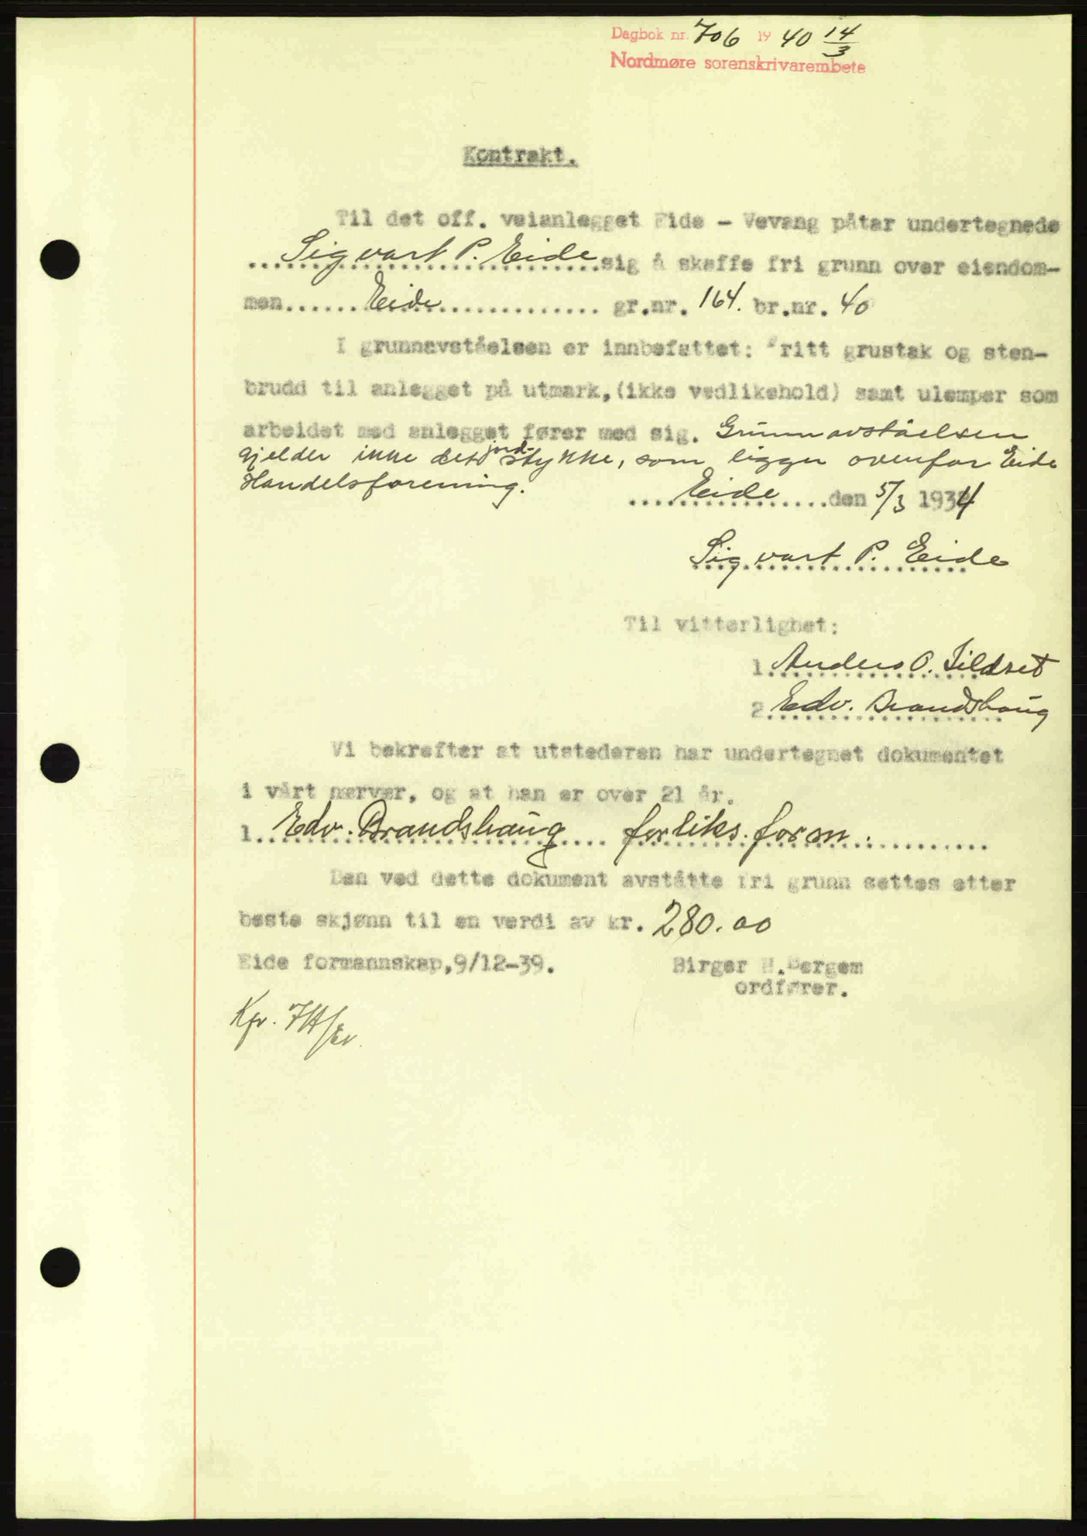 Dagbok nr. 706 19 40 14/3
Nordmøre sorenskrivarembete
Kontrakt.
Til det off. veianlegget Eide - Vevang påtar undertegnede
...Sigvart P. Eide...sig å skaffe fri grunn over eiendom-
men......Eide............... gr.nr. 164. br.nr. 40
I grunnavståelsen er innbefattet: Fritt grustak og sten-
brudd til anlegget på utmark,(ikke vedlikehold) samt ulemper som
arbeidet med anlegget fører med sig. Grunnavståelsen
gjelder ikke det jord-stykke, som ligger ovenfor Eide
Handelsforening.
....Eide.....den 5/3 1934
Sigvart P. Eide
Til vitterlighet:
1. Anders O. Sildset
2. Edv. Brandshaug
Vi bekrefter at utstederen har undertegnet dokumentet
i vårt nærvær, og at han er over 21 år.
1. Edv. Brandshaug .... forliks.form. ..........
Den ved dette dokument avståtte fri grunn settes etter
beste skjønn til en verdi av kr. 280.00
Eide formannskap,9/12-39. Birger H.Bergem
ordfører.
Kfr.